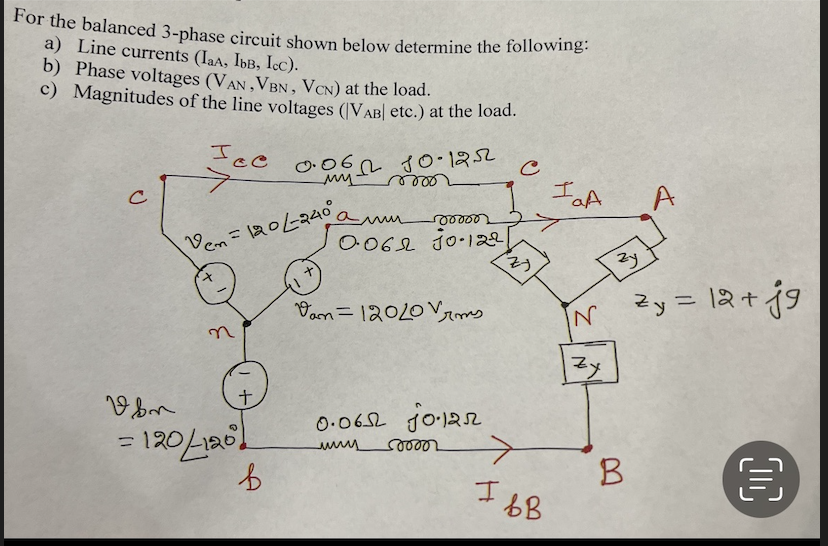 For the balanced 3-phase circuit shown below determine the following:
a) Line currents (IaA, IbB, IcC).
b) Phase voltages (VAN ,VBN, VCN) at the load.
c) Magnitudes of the line voltages (|VAB| etc.) at the load.
IcC 0.06Ω j0.12Ω C
c
IaA A
Vcn = 120∠-240° a
0.06Ω j0.12Ω
Zy Zy
+ - - +
Van = 120∠0 Vrms
n N Zy = 12 + j9
Zy
- +
Vbn
= 120∠-120°
0.06Ω j0.12Ω
b B
IbB